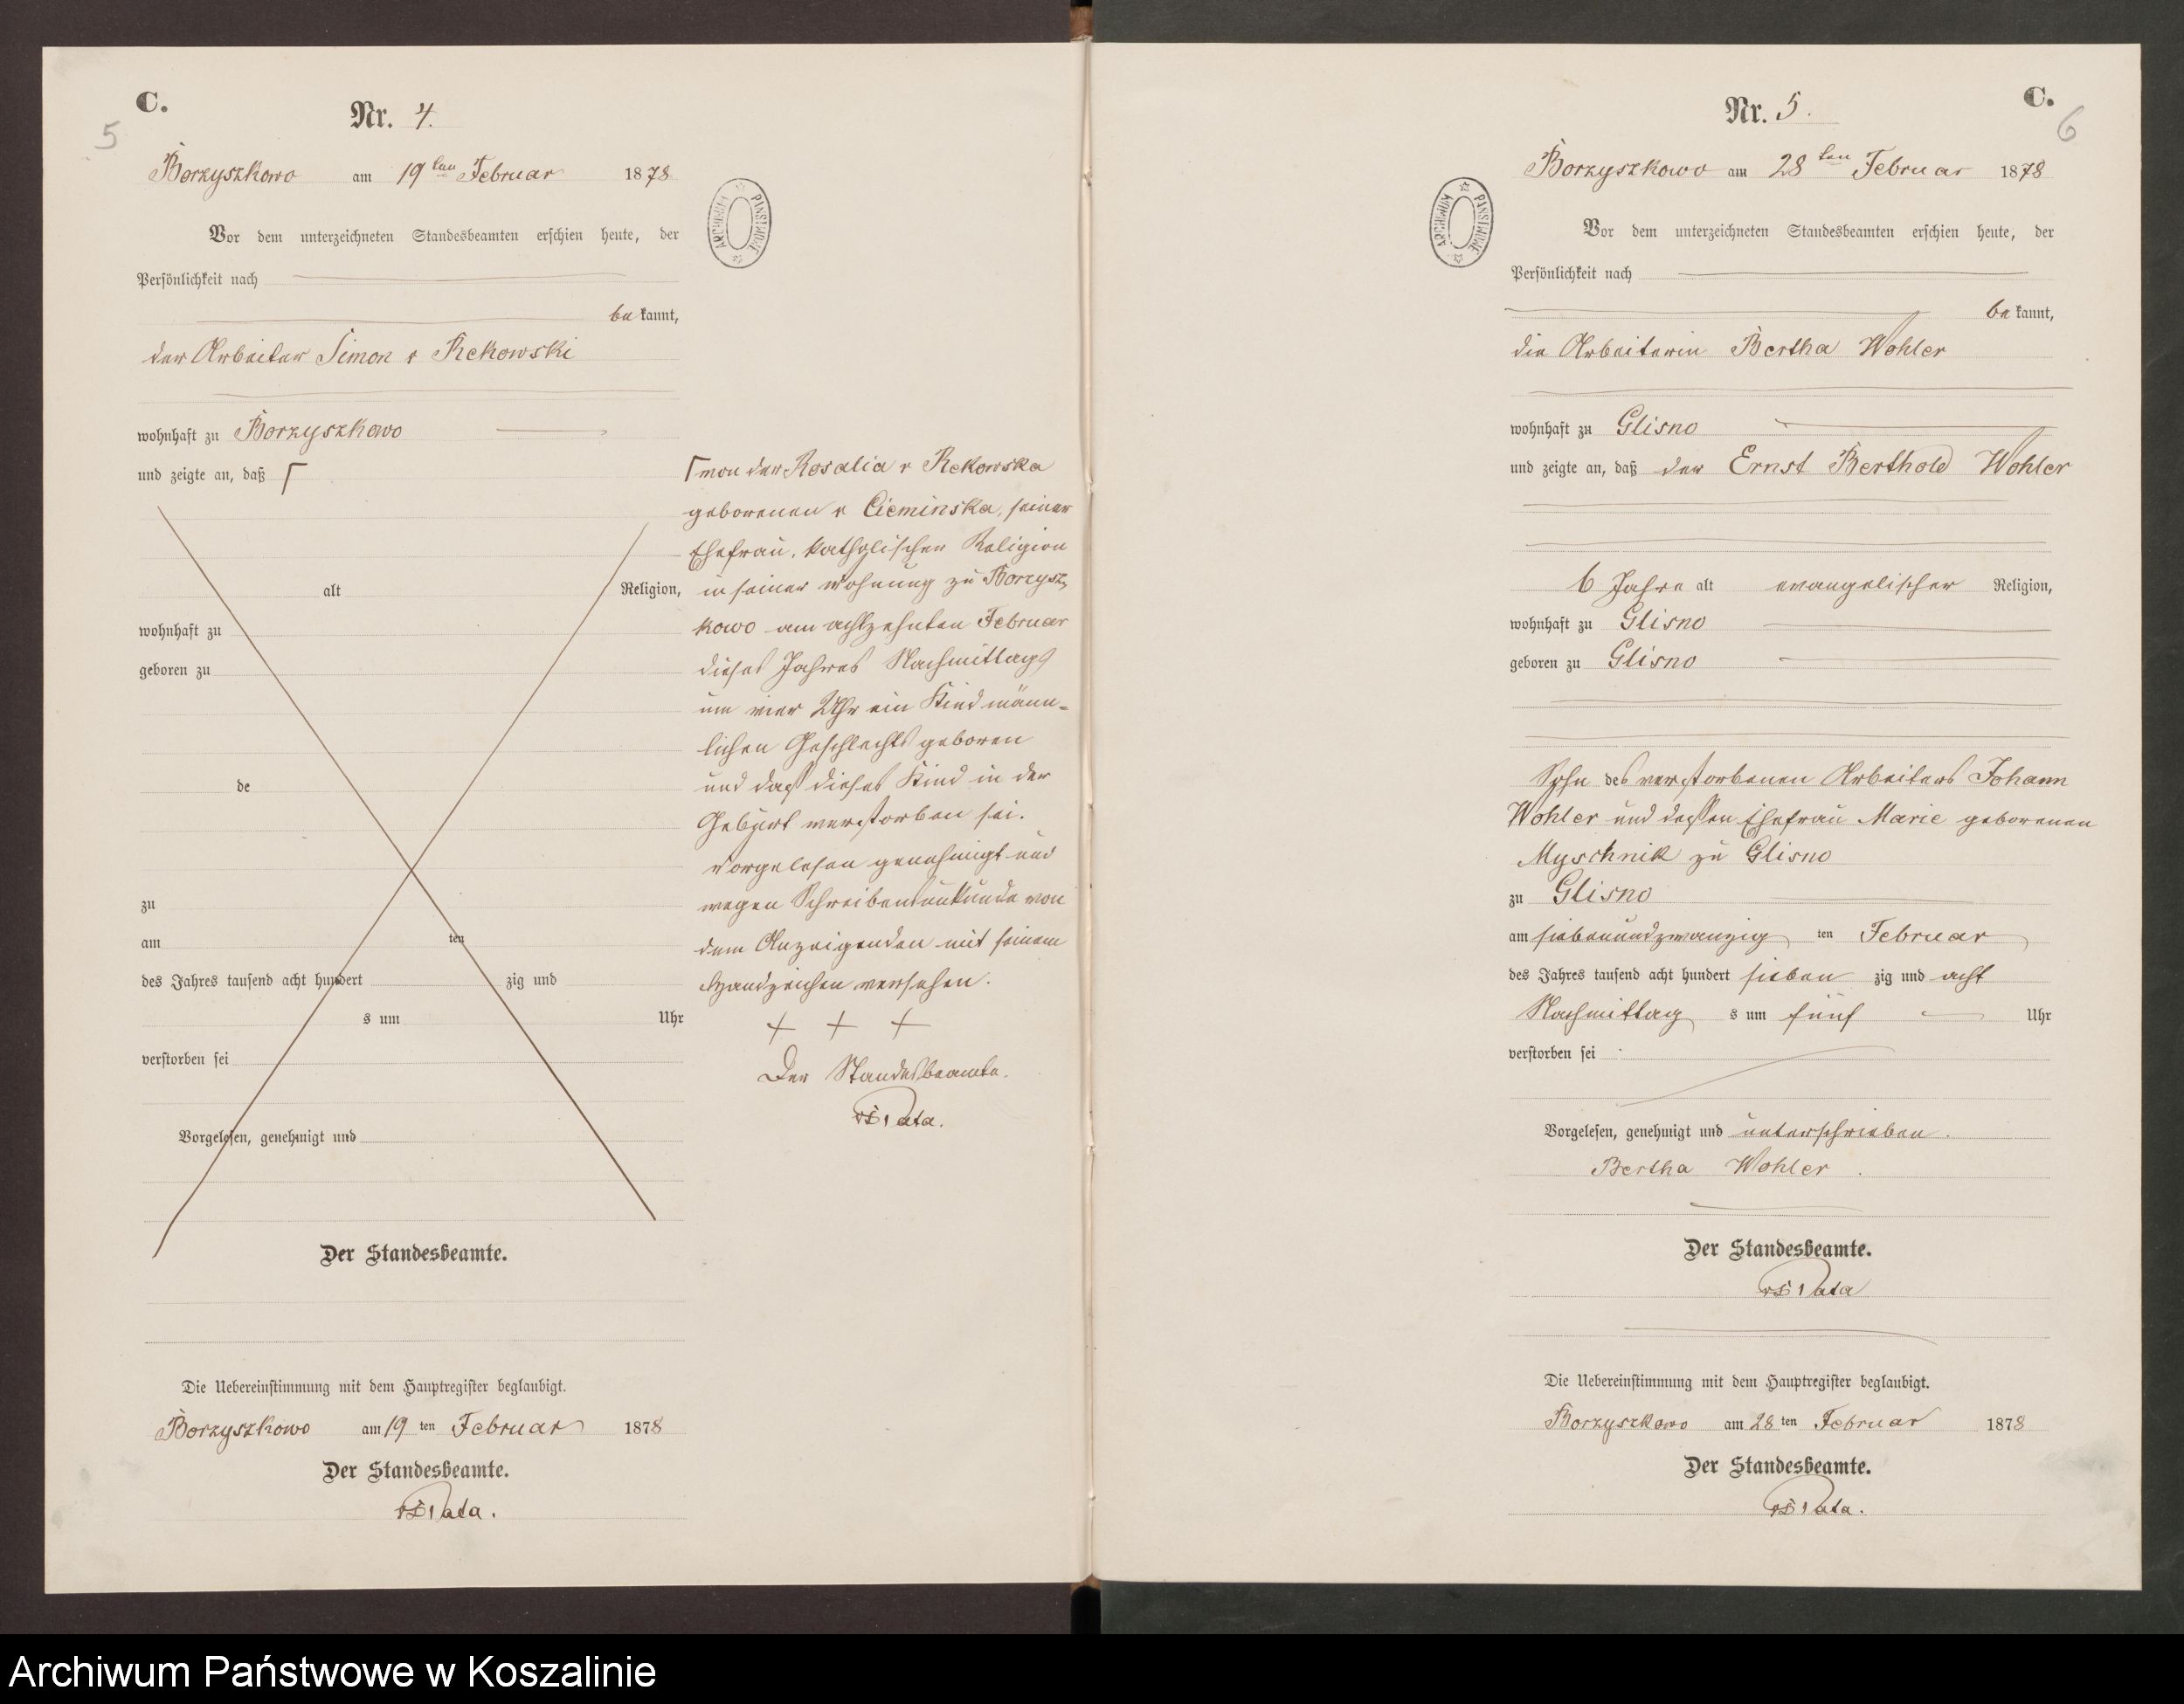 C.
Nr. 4.
5
Borzyszkowo am 19ten Februar 1878
Vor dem unterzeichneten Standesbeamten erschien heute, der
Persönlichkeit nach
bekannt,
der Arbeiter Simon v Rekowski
wohnhaft zu Borzyszkowo
und zeigte an, daß ⌈
alt Religion,
wohnhaft zu
geboren zu
de
zu
am ten
des Jahres tausend acht hundert zig und
s um Uhr
verstorben sei
Vorgelesen, genehmigt und
Der Standesbeamte.
Die Uebereinstimmung mit dem Hauptregister beglaubigt.
Borzyszkowo am 19 ten Februar 1878
Der Standesbeamte.
ARCHIWUM PAŃSTWOWE
⌈ von der Rosalia v Rekowska
geborenen v Cieminska, seiner
Ehefrau, katholischer Religion
in seiner Wohnung zu Borzysz-
kowo am achtzehnten Februar
dieses Jahres Nachmittags
um vier Uhr ein Kind männ-
lichen Geschlechts geboren
und daß dieses Kind in der
Geburt verstorben sei.
Vorgelesen genehmigt und
wegen Schreibensunkunde von
dem Anzeigenden mit seinem
Handzeichen versehen.
+ + +
Der Standesbeamte.
Nr. 5.
C.
6
Borzyszkowo am 28ten Februar 1878
ARCHIWUM PAŃSTWOWE
Vor dem unterzeichneten Standesbeamten erschien heute, der
Persönlichkeit nach
bekannt,
die Arbeiterin Bertha Wohler
wohnhaft zu Glisno
und zeigte an, daß der Ernst Berthold Wohler
6 Jahre alt evangelischer Religion,
wohnhaft zu Glisno
geboren zu Glisno
Sohn des verstorbenen Arbeiters Johann
Wohler und dessen Ehefrau Marie geborenen
Myschnik zu Glisno
zu Glisno
am siebenundzwanzig ten Februar
des Jahres tausend acht hundert sieben zig und acht
Nachmittag s um fünf Uhr
verstorben sei
Vorgelesen, genehmigt und unterschrieben.
Bertha Wohler.
Der Standesbeamte.
Die Uebereinstimmung mit dem Hauptregister beglaubigt.
Borzyszkowo am 28 ten Februar 1878
Der Standesbeamte.
Archiwum Państwowe w Koszalinie